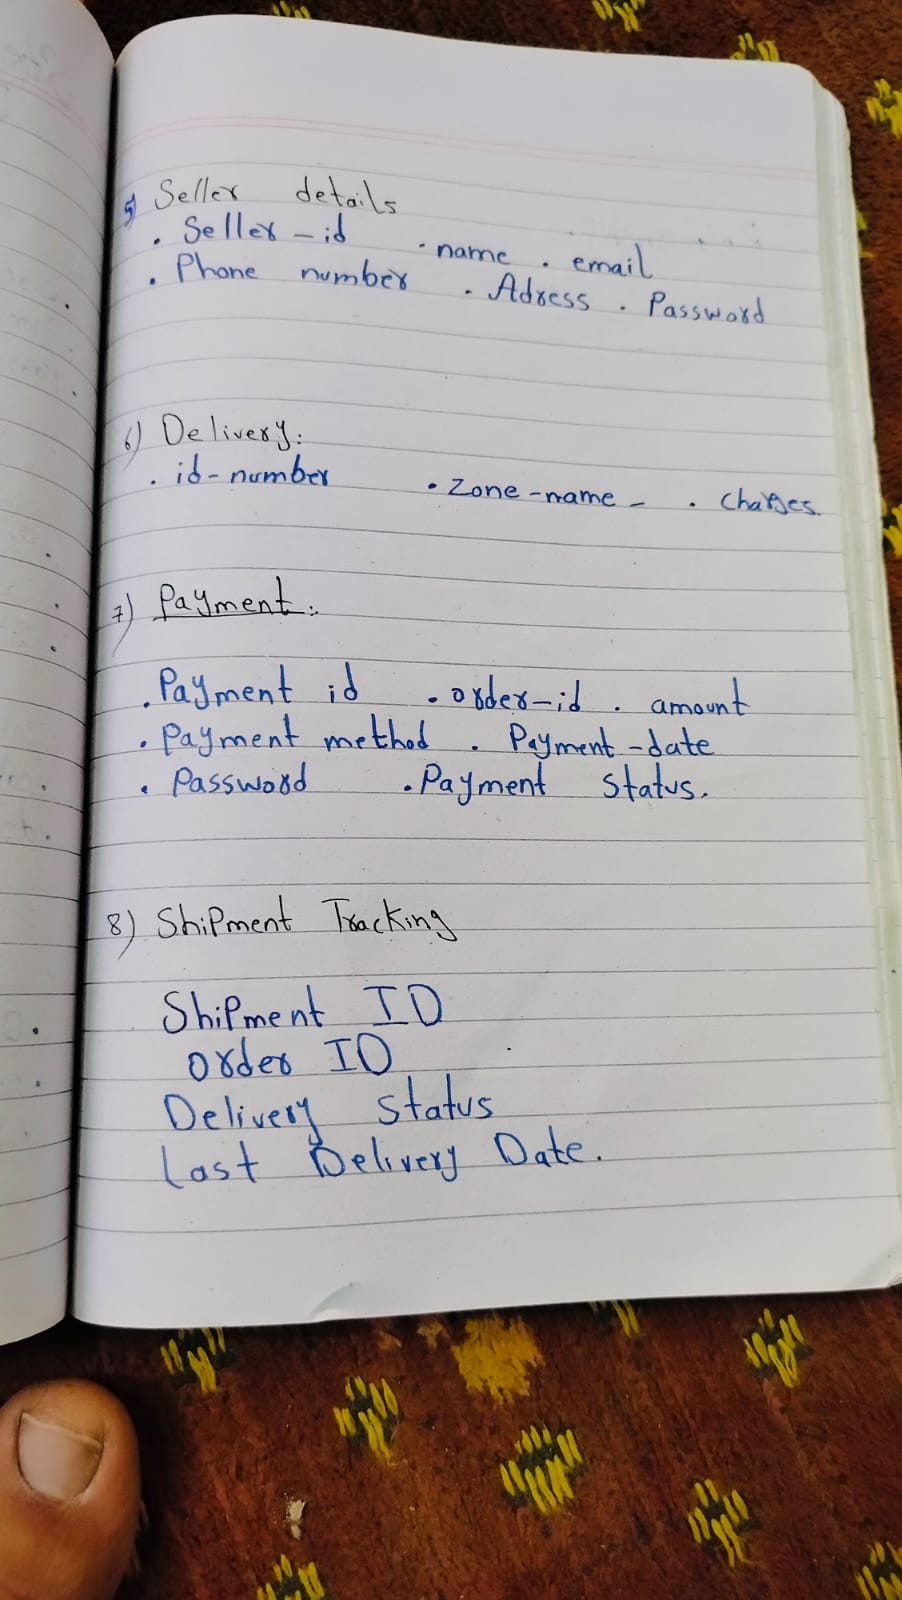 5) Seller details
. Seller-id . name . email
. Phone number . Adress . Password
6) Delivery:
. id-number . Zone-name - . Charges.
7) Payment:
. Payment id . order-id . amount
. Payment method . Payment-date
. Password . Payment Status.
8) Shipment Tracking
Shipment ID
order ID
Delivery Status
Last Delivery Date.